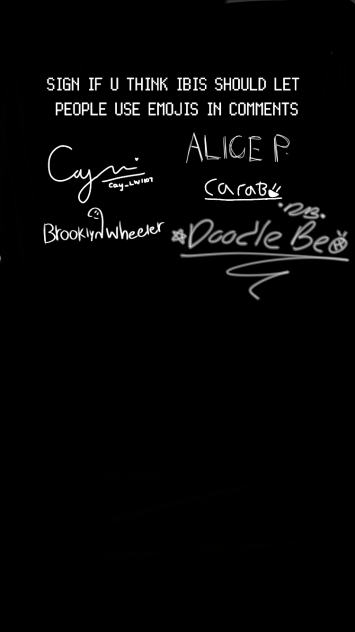 SIGN IF U THINK IBIS SHOULD LET
PEOPLE USE EMOJIS IN COMMENTS
ALICE P.
Cay_LW1107
Carab
Brooklyn Wheeler
Doodle Bee